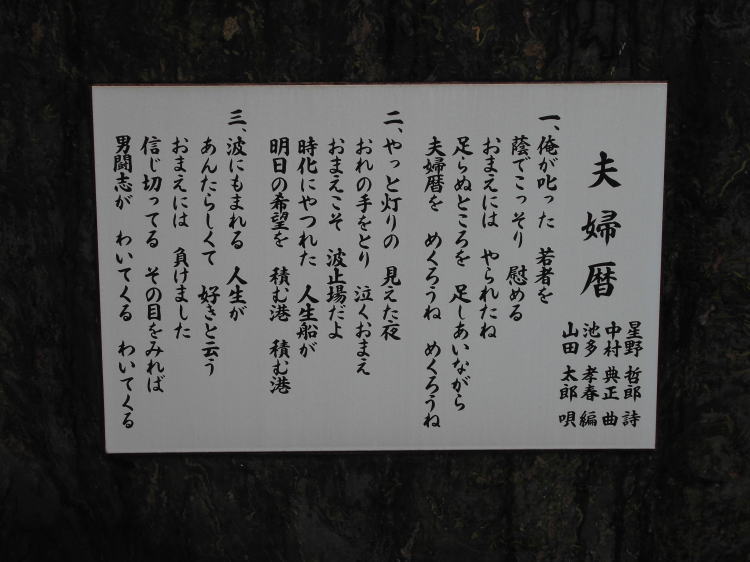 夫婦暦
星野 哲郎 詩
中村 典正 曲
池多 孝春 編
山田 太郎 唄
一、俺が叱った 若者を
蔭でこっそり 慰める
おまえには やられたね
足らぬところを 足しあいながら
夫婦暦を めくろうね めくろうね
二、やっと灯りの 見えた夜
おれの手をとり 泣くおまえ
おまえこそ 波止場だよ
時化にやつれた 人生船が
明日の希望を 積む港 積む港
三、波にもまれる 人生が
あんたらしくて 好きと云う
おまえには 負けました
信じ切ってる その目をみれば
男闘志が わいてくる わいてくる